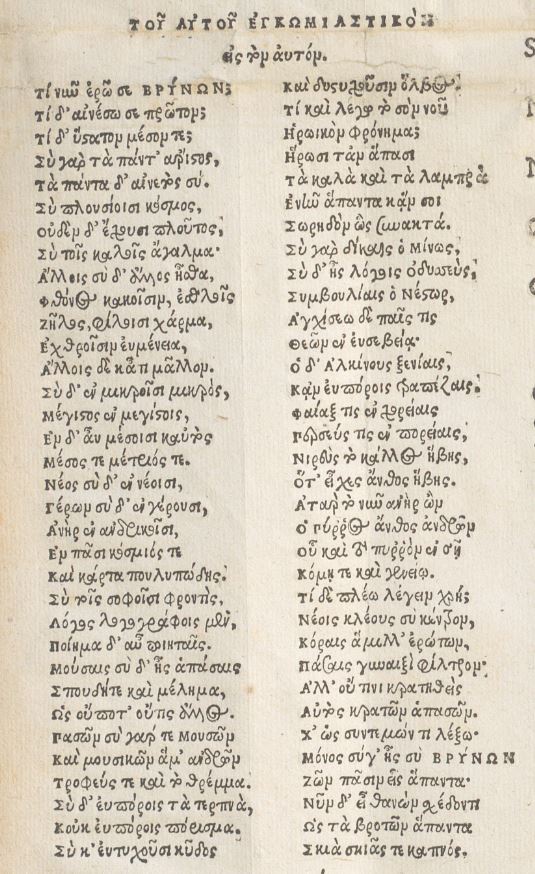 ΤΟΥ͂ ΑΥ̓ΤΟΥ͂ ἘΓΚΩΜΙΑΣΤΙΚῸΝ
εἰς τὸν ἀυτόν.
Τί νιῦ ἐρῶ σε ΒΡΎΝΩΝ;
Τί δ' αἰνέσω σε πρῶτον;
Τί δ' ὕστατον μέσον τε;
Σὺ γὰρ τὰ πάντ' ἄριστος,
Τὰ πάντα δ' αἰνετὸς σύ.
Σὺ πλουσίοισι κόσμος,
Οὐδὲν δ' ἔχουσι πλοῦτος,
Σὺ τοῖς καλοῖς ἄγαλμα·
Ἄλλοις σὺ δ' ἄλλος ἦσθα,
Φθόνος κακοῖσιν, ἐσθλοῖς
Ζῆλος, φίλοισι χάρμα,
Ἐχθροῖσιν ἐυμένεια,
Ἄλλοις δὲ κἄπι μᾶλλον.
Σὺ δ' ἐν μικροῖσι μικρὸς,
Μέγιστος ἐν μεγίστοις,
Ἐν δ' ἂν μέσοισι καὐτὸς
Μέσος τε μέτριός τε.
Νέος σὺ δ' ἐν νέοισι,
Γέρων σὺ δ' ἐν γέρουσι,
Ἀνὴρ ἐν ἀνδρικοῖσι,
Ἐν πᾶσι κόσμιός τε
Καὶ κάρτα πουλυπώδης.
Σὺ τοῖς σοφοῖσι φροντὶς,
Λόγος λογογράφοις μὲν,
Ποίημα δ' αὖ ποιηταῖς.
Μούσαις σὺ δ' ἦς ἁπάσαις
Σπουδή τε καὶ μέλημα,
Ὡς οὔποτ' οὔτις ἄλλος.
Πασῶν σὺ γάρ τε Μουσῶν
Καὶ μουσικῶν ἅμ' ἀνδρῶν
Τροφεύς τε καὶ τὸ θρέμμα.
Σὺ δ' ἐυπόροις τὰ τερπνὰ,
Κοὐκ ἐυπόροις πόρισμα.
Σὺ κ' ἐντυχοῦσι κῦδος
Καὶ δυςτυχοῦσιν ὄλβος.
Τί καὶ λέγω τὸ σὸν νοῦ
Ἡρωικὸν φρόνημα;
Ἥρωσι τἂν ἅπασι
Τὰ καλὰ καὶ τὰ λαμπρὰ
Ἐνιῶ ἅπαντα κἄν σοι
Σωρηδὸν ὡς ξυνακτά.
Σὺ γὰρ δίκαις ὁ Μίνως,
Σὺ δ' ἦς λόγοις ὀδυσσεὺς,
Συμβουλίαις ὁ Νέστωρ,
Ἀγχίσεω δὲ παῖς τις
Θεῶν ἐν ἐυσεβείᾳ·
Ὁ δ' Ἀλκίνους ξενίαις,
Κἀν ἐυπόροις τραπέζαις.
Φαίαξ τις ἐν χορείαις
Πορθεύς τις ἐν πορείαις,
Νιρεὺς τὸ κάλλος ἥβης,
Ὅτ' εἶχες ἄνθος ἥβης.
Ἀτὰρ τὸ νιῦ ἀνὴρ ὢν
Ὁ Πύρρος ἄνθος ἀνδρῶν
Οὗ καὶ τὸ πυῤῥὸν ἐν σῇ
Κόμῃ τε καὶ γενείῳ.
Τί δὲ πλέω λέγειν χρή;
Νέοις κλέους σὺ κέντρον,
Κόραις ἅμιλλ' ἐρώτων,
Πάσαις γυναιξὶ φίλτρον·
Ἀλλ' οὔτινι κρατηθεὶς
Αὐτὸς κρατῶν ἁπασῶν.
Χ' ὡς συντεμών τι λέξω·
Μόνος σύγ' ἦς σὺ ΒΡΎΝΩΝ
Ζῶν πᾶσιν εἷς ἅπαντα·
Νῦν δ' εἶ θανὼν σχέδοντι
Ὡς τὰ βροτῶν ἅπαντα
Σκιὰ σκιᾶς τε καπνός.